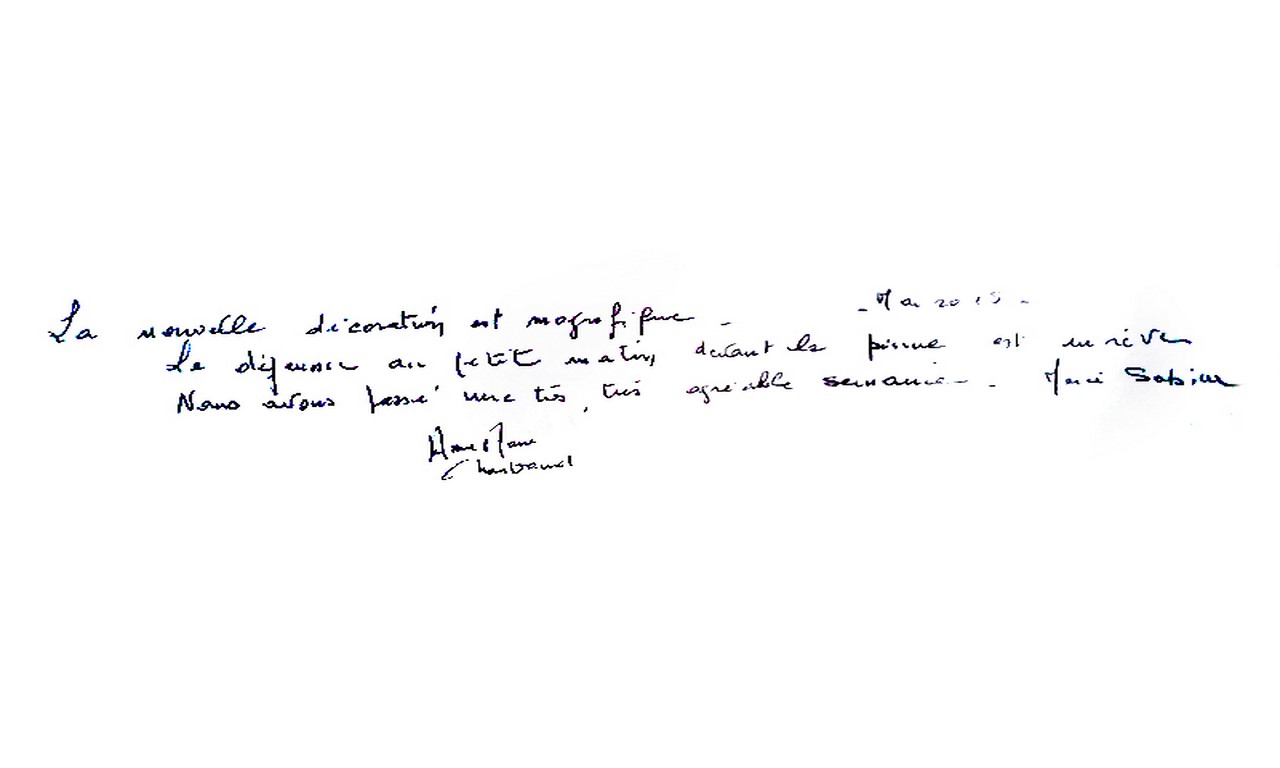 La nouvelle décoration est magnifique - - Mai 2015 -
Le déjeuner au petit matin devant la piscine est un rêve
Nous avons passé une très, très agréable semaine - . Merci Sabine
Anne Marie